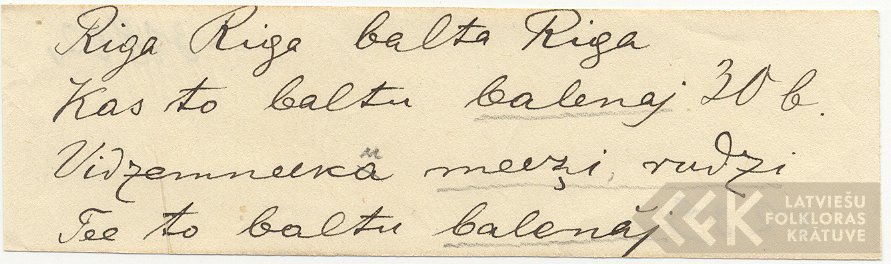 Riga Riga balta Riga
Kas to baltu balenaj 30 b.
Vidzemneeka meezi, rudzi
Tee to baltu balenāj
LATVIEŠU
FOLKLORAS
KRĀTUVE